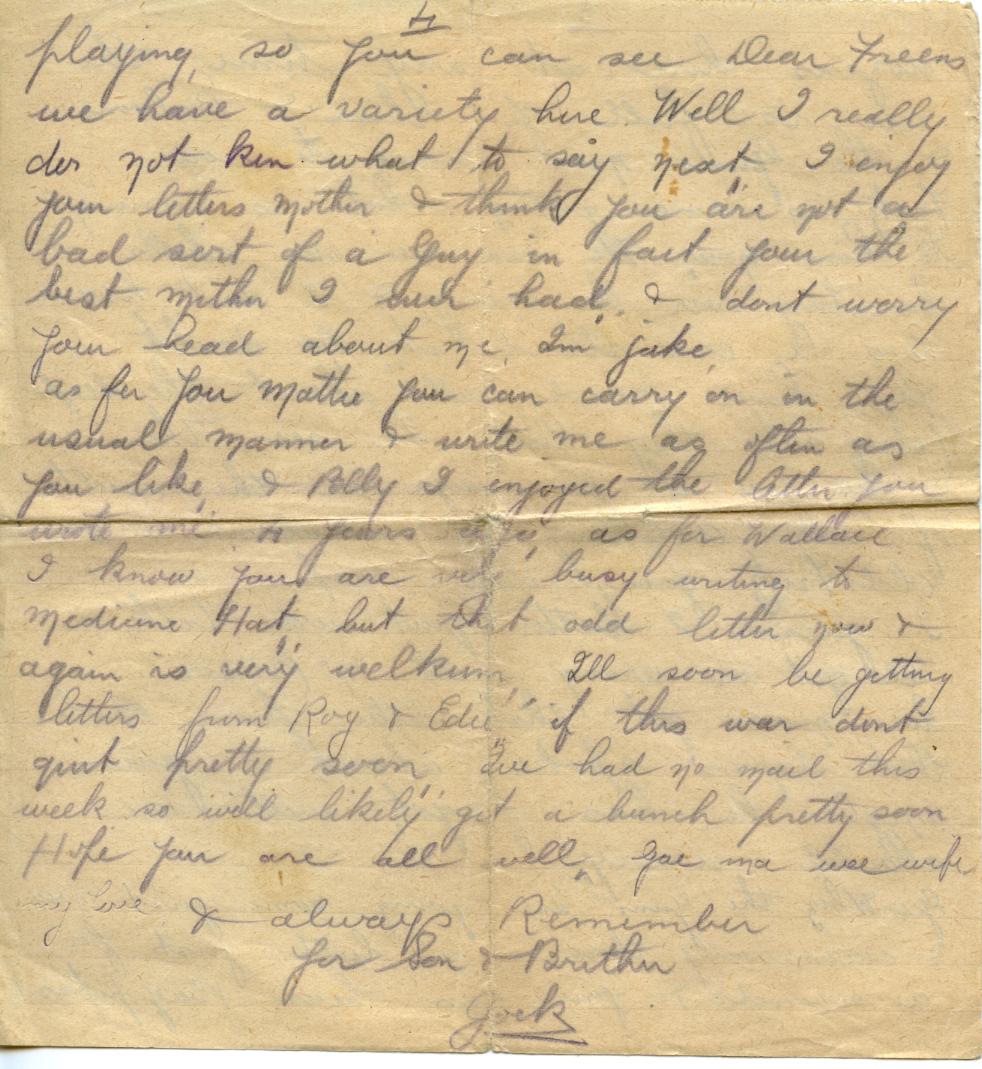 4
playing, so you can see Dear Freens
we have a variety here. Well I really
der not ken what to say next I enjoy
your letters Mother & think you are not a
bad sort of a Guy in fact your the
best mither I ever had, & dont worry
your head about me, Im jake,
as fer you Mattie you can carry on in the
usual manner & write me as often as
you like, & Polly I enjoyed the letter you
wrote me 4 years ago, as fer Wallace
I know your are very busy writing to
Medicine Hat, but that odd letter now &
again is very welkum, Ill soon be getting
letters from Roy & Edie if this war dont
quit pretty soon Ive had no mail this
week so will likely get a bunch pretty soon
Hope you are all well, Gae ma wee wife
my love & always Remember
yer Son & Brither
Jock